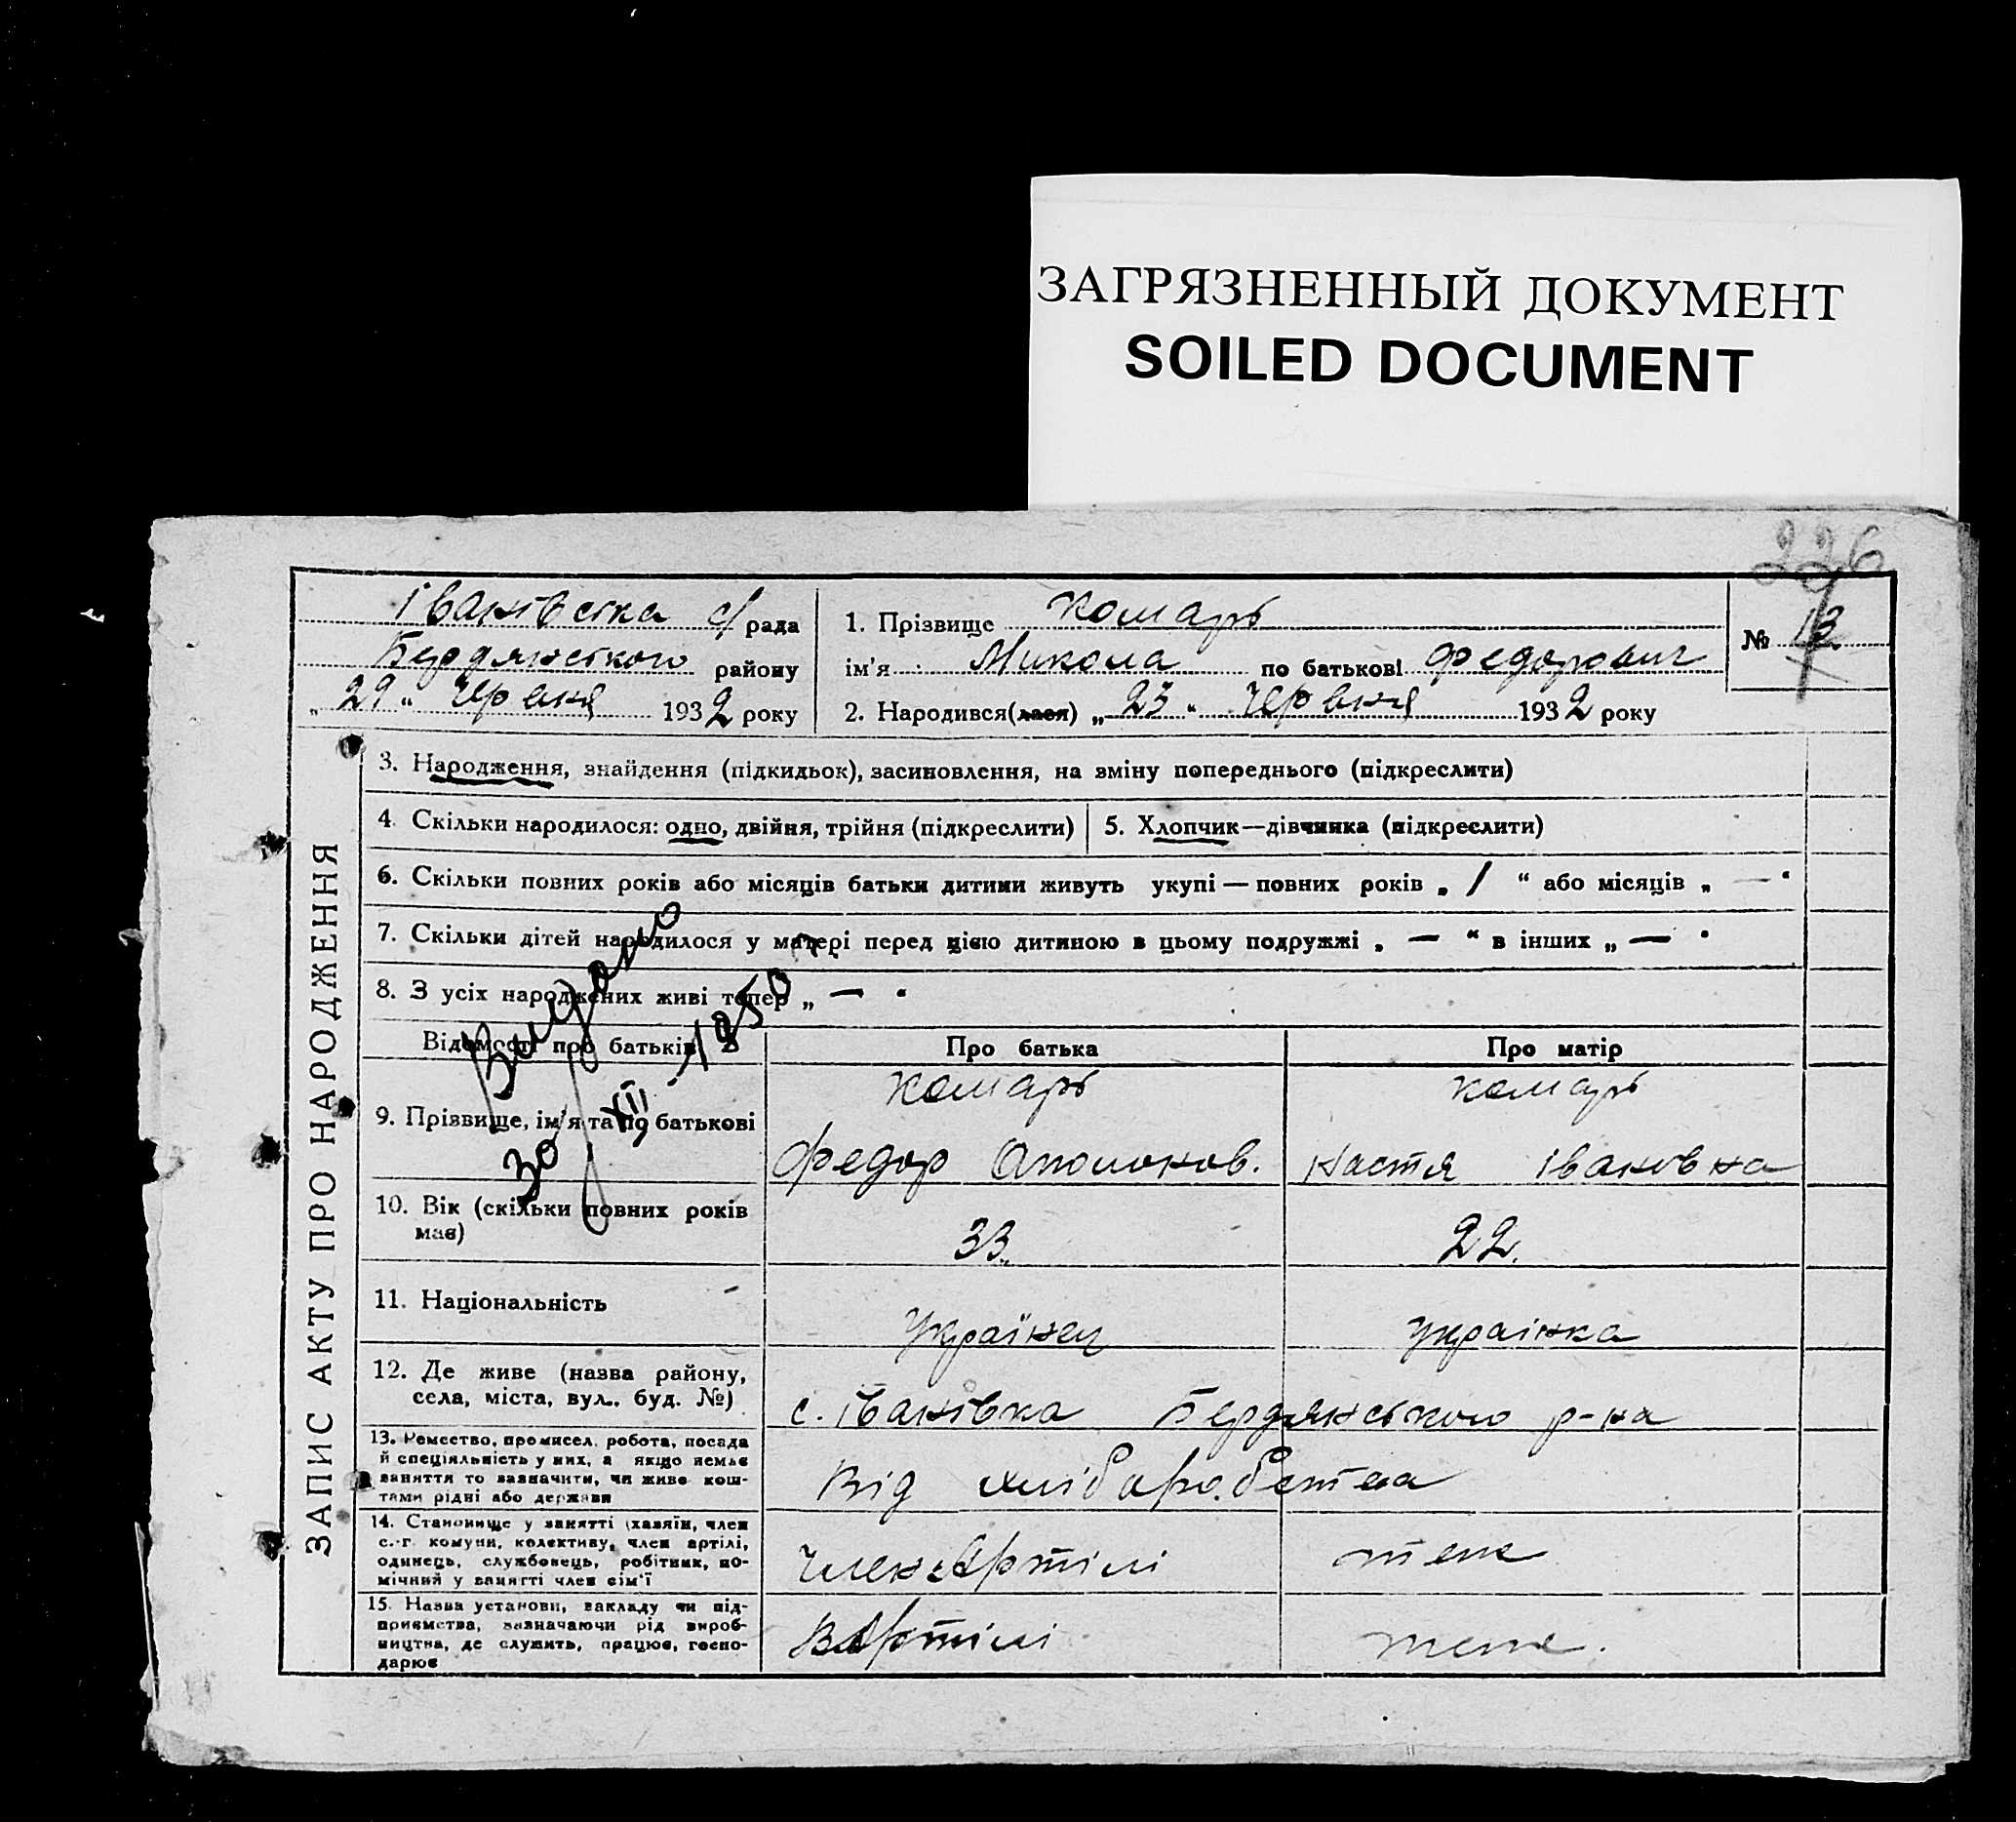 ЗАГРЯЗНЕННЫЙ ДОКУМЕНТ
SOILED DOCUMENT
226
Іванівська с/рада
Бердянського району
„29" Червня 1932 року
1. Прізвище Комарь
ім'я Микола по батькові Федорович
№ 13
2. Народився(лася) „23" Червня 1932 року
ЗАПИС АКТУ ПРО НАРОДЖЕННЯ
3. Народження, знайдення (підкидьок), засиновлення, на зміну попереднього (підкреслити)
4. Скільки народилося: одно, двійня, трійня (підкреслити)
5. Хлопчик—дівчинка (підкреслити)
6. Скільки повних років або місяців батьки дитини живуть укупі — повних років „ 1 " або місяців „ — "
7. Скільки дітей народилося у матері перед цією дитиною в цьому подружжі „ — " в інших „ — "
8. З усіх народжених живі тепер „ — "
Видано
30/XII 1950
Відомості про батьків
Про батька
Про матір
9. Прізвище, ім'я та по батькові
Комарь
Федор
Комарь
Настя Івановна
10. Вік (скільки повних років має)
33.
22.
11. Національність
Українец
Українка
12. Де живе (назва району, села, міста, вул. буд. №)
с. Іванівка Бердянського р-на
13. Ремество, промисел, робота, посада
й спеціяльність у них, а якщо немає
заняття то зазначити, чи живе кош-
тами рідні або держави
Від хліборобства
14. Становище у занятті (хазяїн, член
с.-г. комуни, колективу, член артілі,
одинець, службовець, робітник, по-
мічний у занятті член сім'ї
Член Артілі
теж
15. Назва установи, закладу чи під-
приємства, зазначаючи рід вироб-
ництва, де служить, працює, госпо-
дарює
В Артілі
теж.